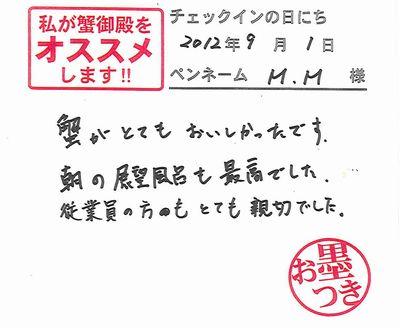 私が蟹御殿を
オススメ
します!!
チェックインの日にち
2012年9月1日
ペンネーム M.M 様
蟹がとてもおいしかったです.
朝の展望風呂も最高でした.
従業員の方のもとても親切でした.
お墨
つき